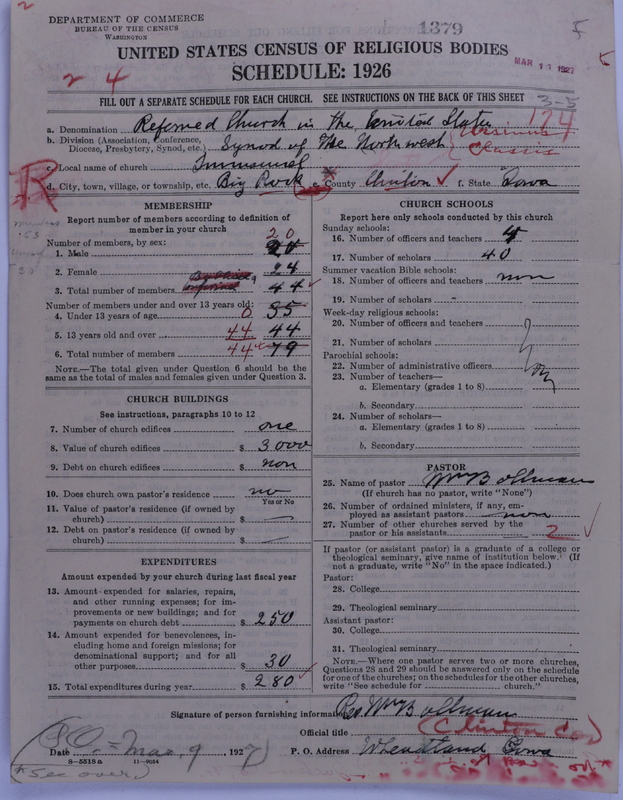 DEPARTMENT OF COMMERCE
BUREAU OF THE CENSUS
WASHINGTON
1379
MAR 11 1927
UNITED STATES CENSUS OF RELIGIOUS BODIES
SCHEDULE: 1926
2 4
FILL OUT A SEPARATE SCHEDULE FOR EACH CHURCH. SEE INSTRUCTIONS ON THE BACK OF THIS SHEET
3-5
174
a. Denomination Reformed Church in the United States
b. Division (Association, Conference, Diocese, Presbytery, Synod, etc.) Synod of The Northwest
Ursinus Classis
c. Local name of church Immanuel
R
d. City, town, village, or township, etc. Big Rock e. County Clinton f. State Iowa
MEMBERSHIP
Report number of members according to definition of
member in your church
Number of members, by sex: 20
1. Male 20
2. Female 24
3. Total number of members 44
Number of members under and over 13 years old:
4. Under 13 years of age 0 35
5. 13 years old and over 44 44
6. Total number of members 44 79
NOTE.—The total given under Question 6 should be
same as the total of males and females given under Question 3.
CHURCH BUILDINGS
See instructions, paragraphs 10 to 12
7. Number of church edifices one
8. Value of church edifices $ 3000
9. Debt on church edifices $ non
10. Does church own pastor's residence no
Yes or No
11. Value of pastor's residence (if owned by
church) $ —
12. Debt on pastor's residence (if owned by
church) $ —
EXPENDITURES
Amount expended by your church during last fiscal year
13. Amount expended for salaries, repairs,
and other running expenses; for im-
provements or new buildings; and for
payments on church debt $ 250
14. Amount expended for benevolences, in-
cluding home and foreign missions; for
denominational support; and for all
other purposes $ 30
15. Total expenditures during year $ 280
CHURCH SCHOOLS
Report here only schools conducted by this church
Sunday schools:
16. Number of officers and teachers 4
17. Number of scholars 40
Summer vacation Bible schools:
18. Number of officers and teachers non
19. Number of scholars -
Week-day religious schools:
20. Number of officers and teachers
21. Number of scholars
Parochial schools:
22. Number of administrative officers
23. Number of teachers—
a. Elementary (grades 1 to 8)
b. Secondary
24. Number of scholars—
a. Elementary (grades 1 to 8)
b. Secondary
PASTOR
25. Name of pastor Wm Bollman
(If church has no pastor, write "None")
26. Number of ordained ministers, if any, em-
ployed as assistant pastors non
27. Number of other churches served by the
pastor or his assistants 2
If pastor (or assistant pastor) is a graduate of a college or
theological seminary, give name of institution below. (If
not a graduate, write "No" in the space indicated.)
Pastor:
28. College
29. Theological seminary
Assistant pastor:
30. College
31. Theological seminary
NOTE.—Where one pastor serves two or more churches,
Questions 28 and 29 should be answered only on the schedule
for one of the churches; on the schedules for the other churches,
write "See schedule for church."
Signature of person furnishing information Rev. Wm Bollman
Official title (Clinton Co)
Date Mar. 9, 1927 P. O. Address Wheatland Iowa
8-5518a 11-9054
(*See over)